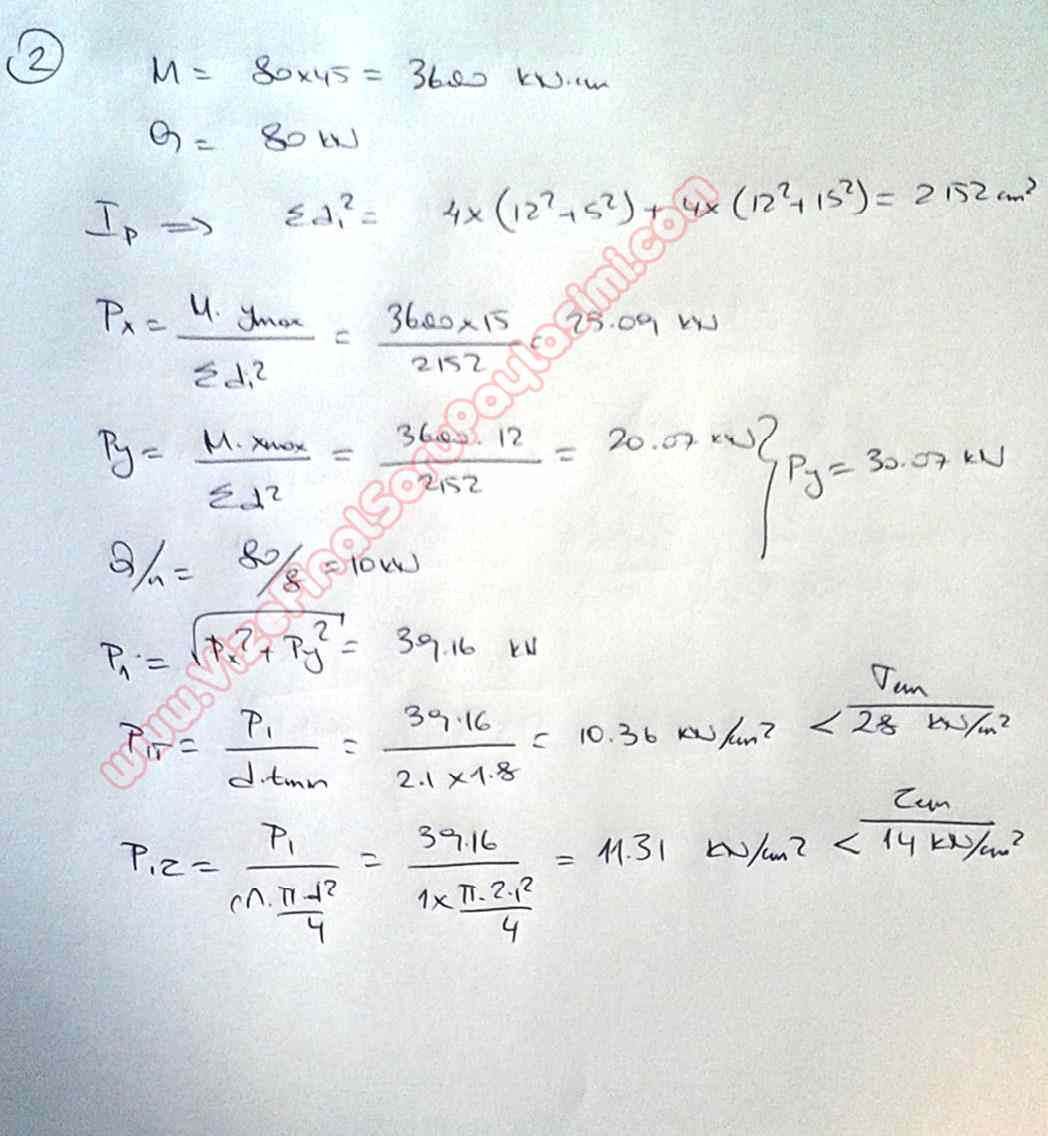 2
M = 80x45 = 3600 kN.cm
Q = 80 kN
Ip => Σdi² = 4x(12²+5²)+4x(12²+15²) = 2152 cm²
Px = M.ymax / Σdi² = 3600x15 / 2152 = 25.09 kN
Py = M.xmax / Σd² = 3600.12 / 2152 = 20.07 kN } Py = 30.07 kN
Q/n = 80/8 = 10 kN
P1 = √Px²+Py² = 39.16 kN
P1σ = P1 / d.tmin = 39.16 / 2.1x1.8 = 10.36 kN/cm² < σem / 28 kN/m²
P1τ = P1 / m.π.d²/4 = 39.16 / 1xπ.2.1²/4 = 11.31 kN/cm² < τem / 14 kN/cm²
www.VizeFinalSoruPaylasimi.com